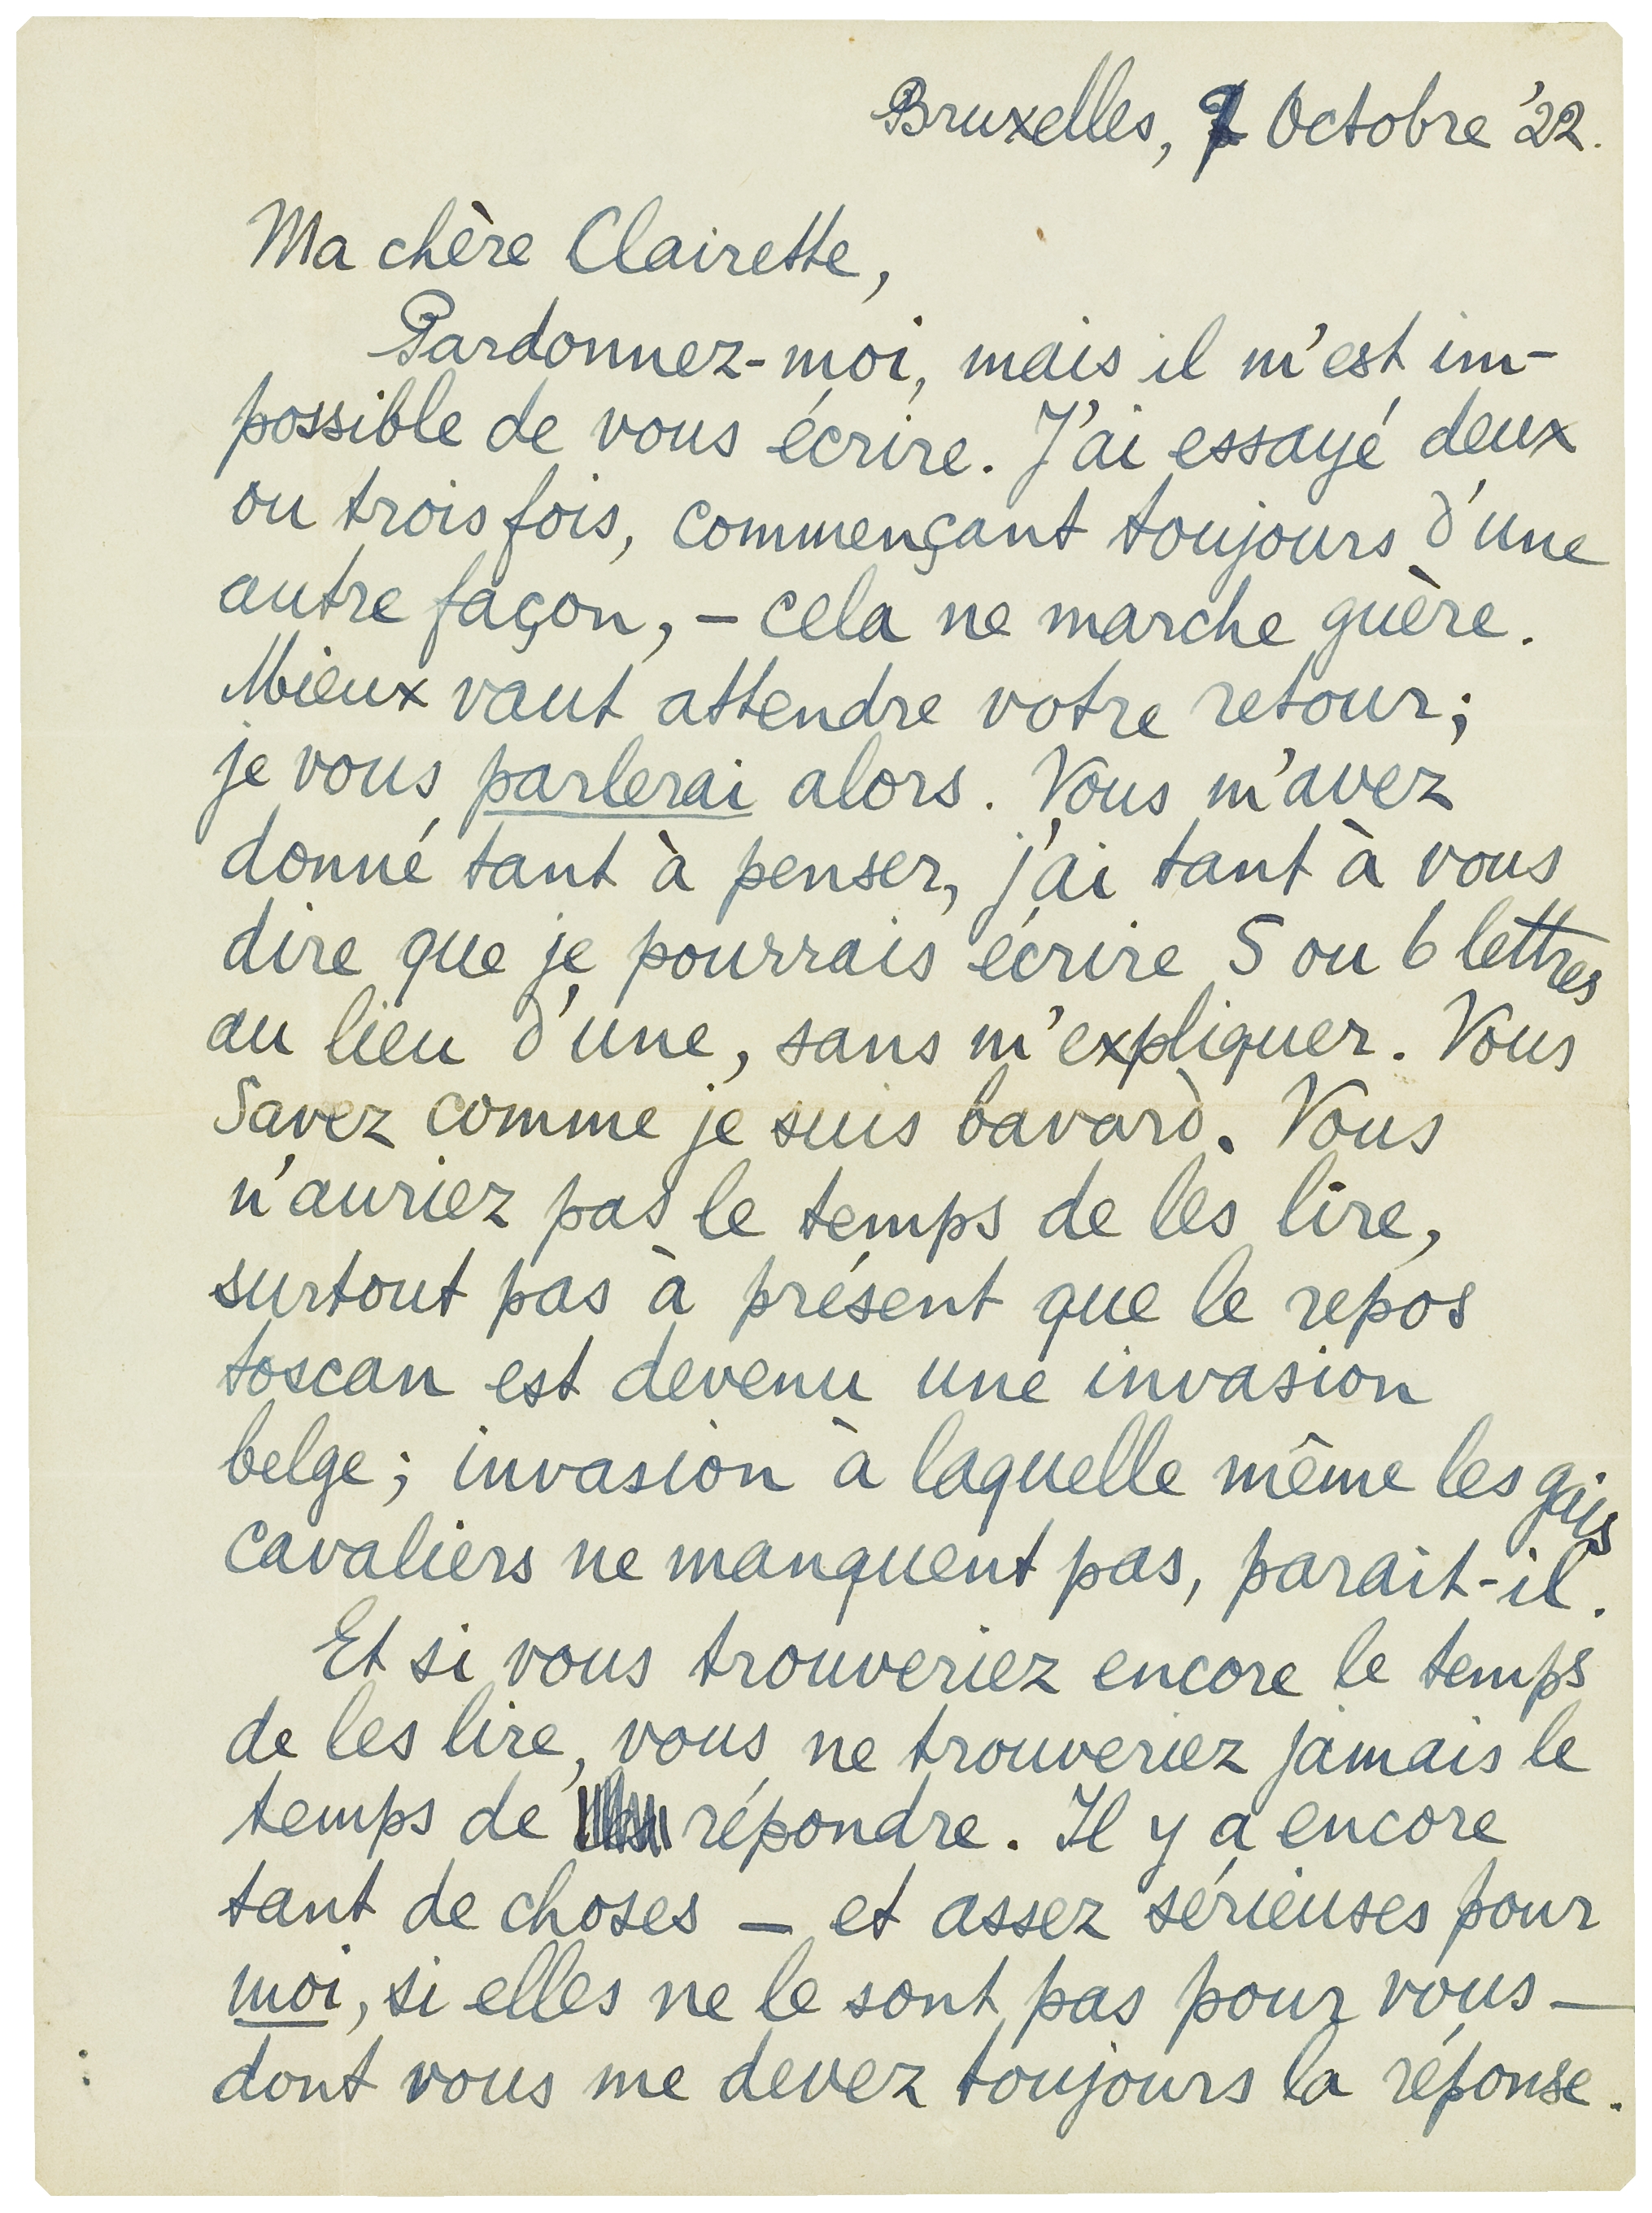 Bruxelles, 7 Octobre '22.
Ma chère Clairette,
Pardonnez-moi, mais il m'est im-
possible de vous écrire. J'ai essayé deux
ou trois fois, commençant toujours d'une
autre façon, – cela ne marche guère.
Mieux vaut attendre votre retour;
je vous parlerai alors. Vous m'avez
donné tant à penser, j'ai tant à vous
dire que je pourrais écrire 5 ou 6 lettres
au lieu d'une, sans m'expliquer. Vous
savez comme je suis bavard. Vous
n'auriez pas le temps de les lire,
surtout pas à présent que le repos
toscan est devenu une invasion
belge; invasion à laquelle même les gais
cavaliers ne manquent pas, parait-il.
Et si vous trouveriez encore le temps
de les lire, vous ne trouveriez jamais le
temps de répondre. Il y a encore
tant de choses – et assez sérieuses pour
moi, si elles ne le sont pas pour vous –
dont vous me devez toujours la réponse.